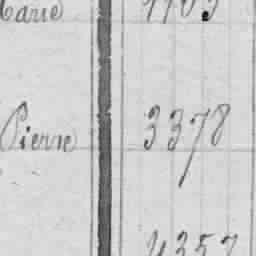 Marie
Pierre 3378
4357